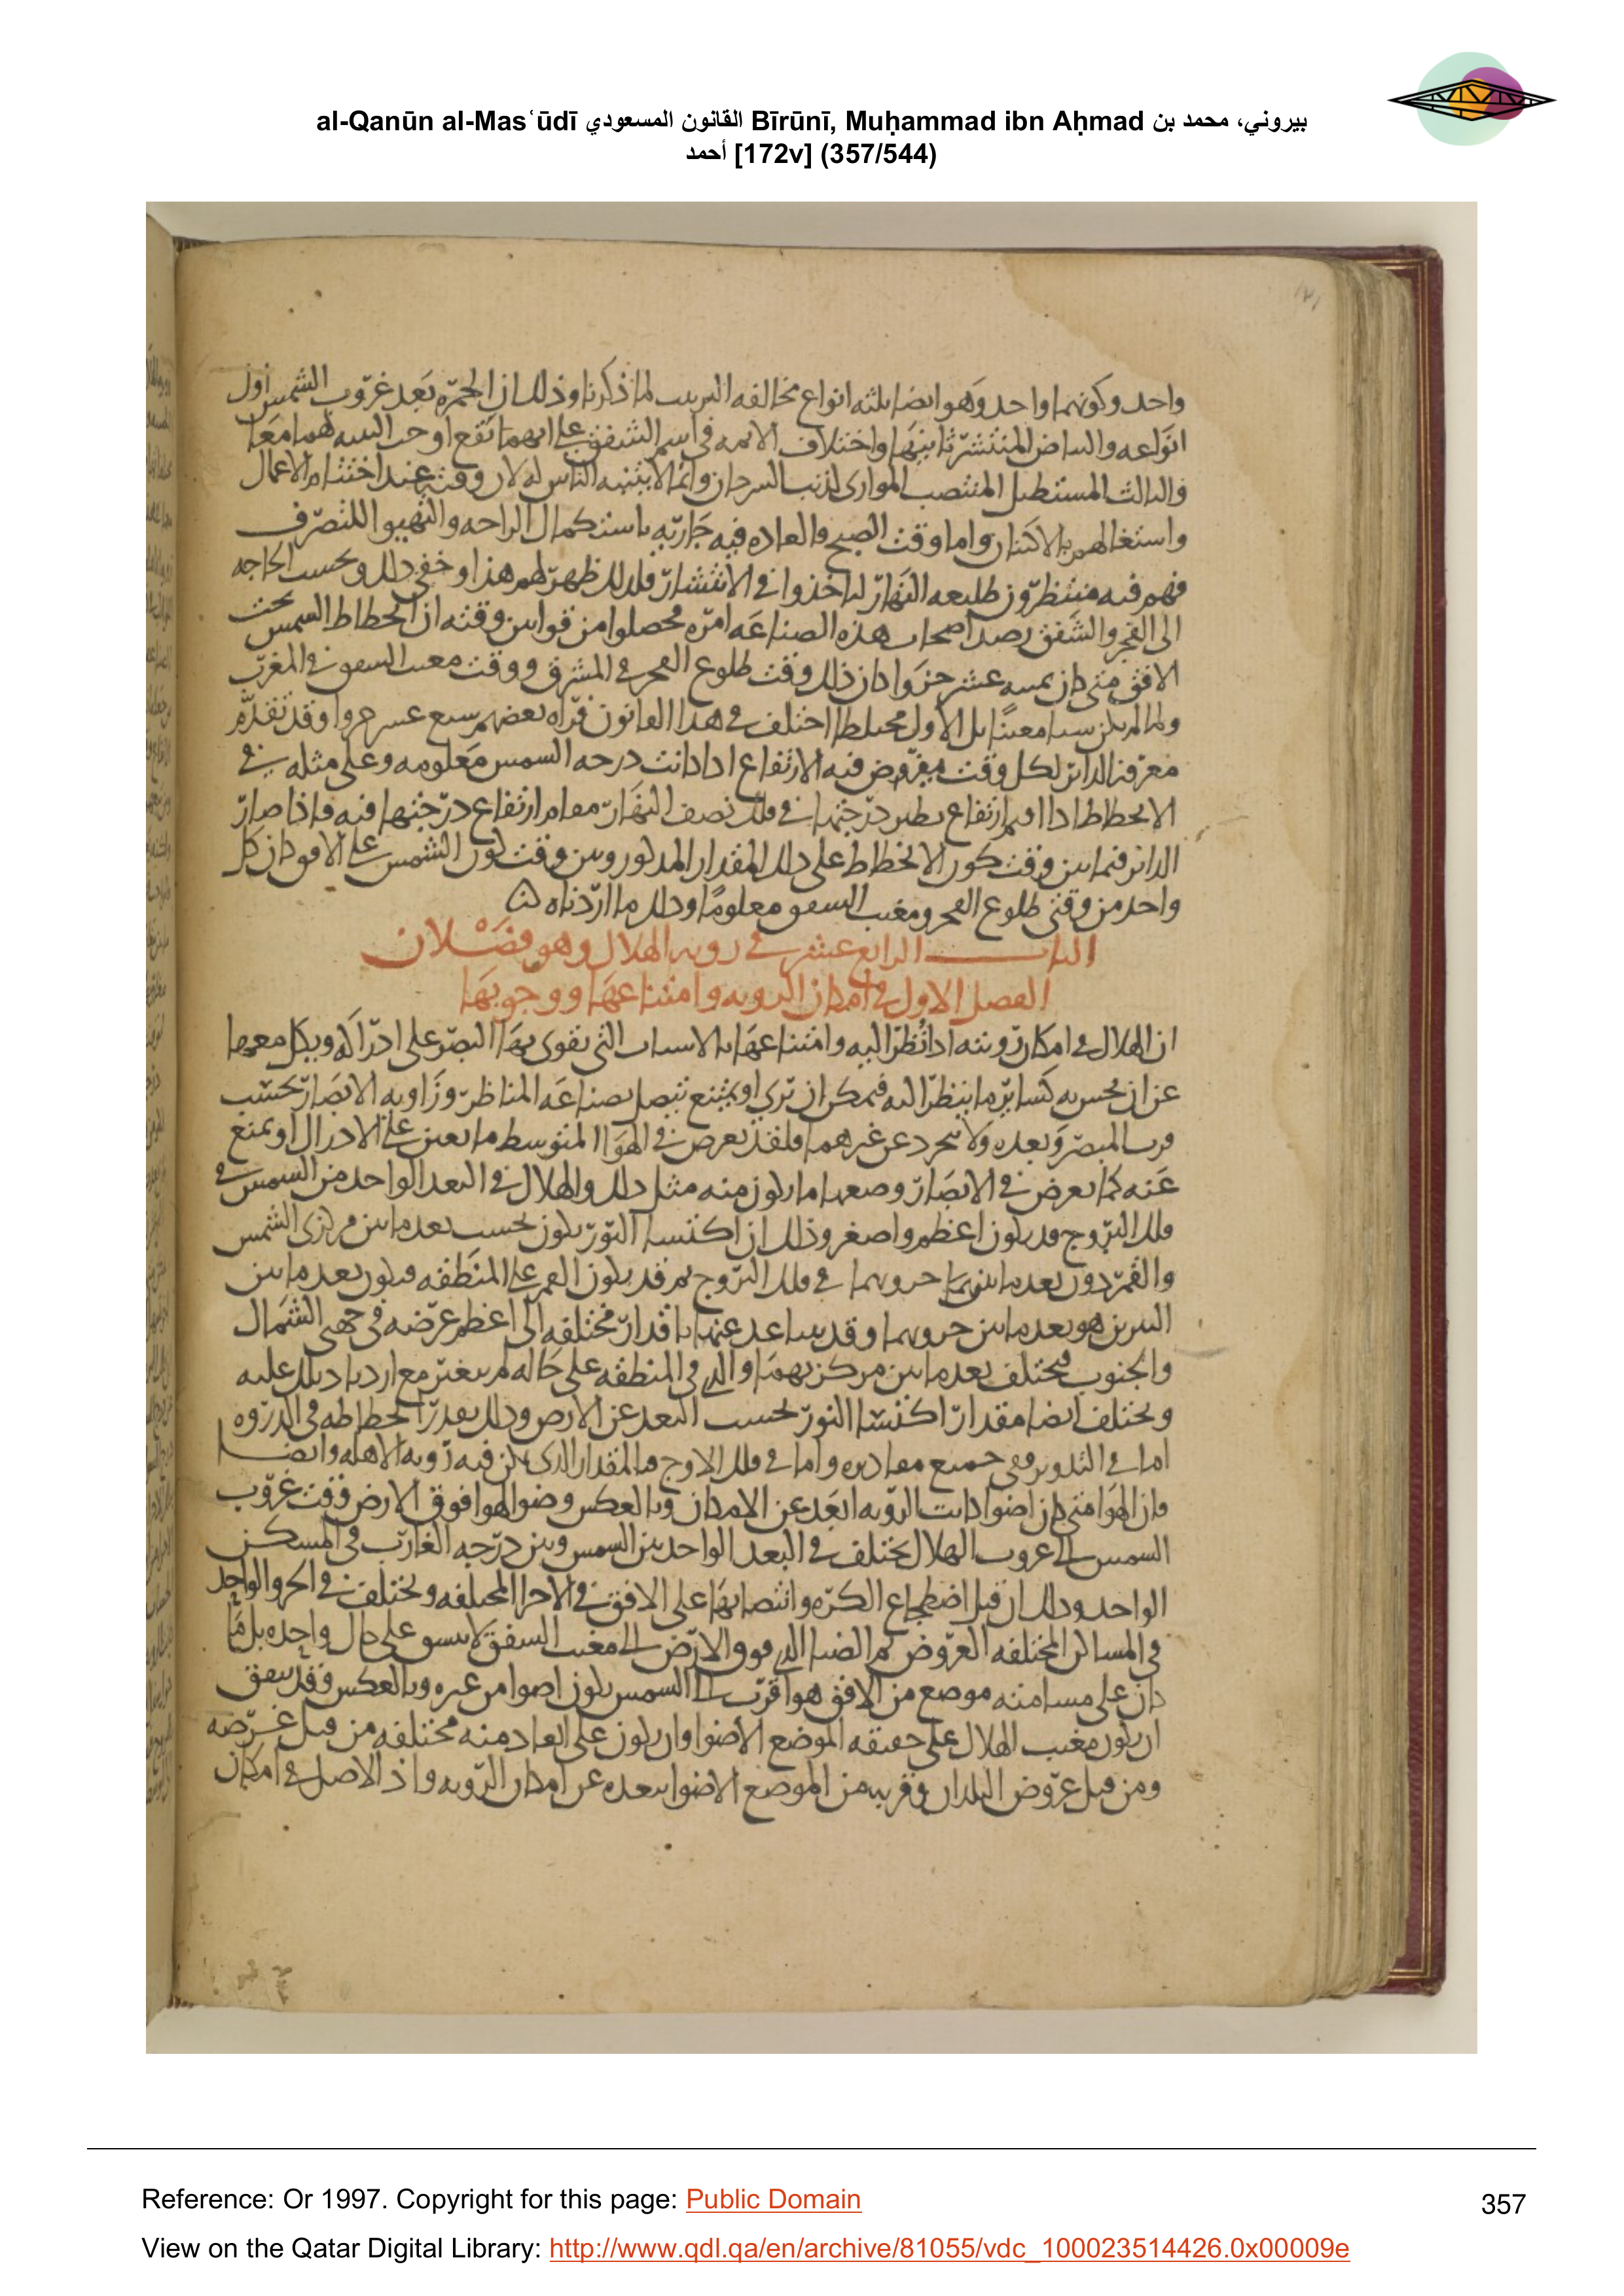 al-Qanūn al-Masʿūdī القانون المسعودي Bīrūnī, Muḥammad ibn Aḥmad بيروني، محمد بن
أحمد [172v] (357/544)
واحد وكونهما واحد وهو ايضا ثلثه انواع مخالفه الترتيب لما ذكرنا وذلك ان الحمره بعد غروب الشمس اول
انواعه والبياض المنتشر ثانيها واختلاف الايمه في اسم الشفق على ايهما يقع اوجب التنبه لهما معا
والثالث المستطيل المنتصب الموازي لذنب السرحان وانما لا يتنبه الناس له لان وقته عند اختتام الاعمال
واشتغالهم بالاكتنان واما وقت الصبح فالعاده فيه جاريه باستكمال الراحه والتهيو للتصرف
فهم فيه منتظرون طليعه النهار لياخذوا في الانتشار فلذلك ظهر لهم هذا وخفي ذلك وبحسب الحاجه
الى الفجر والشفق رصد اصحاب هذه الصناعه امره فحصلوا من قوانين وقته ان انحطاط الشمس تحت
الافق متى كان ثمنيه عشر جزوا كان ذلك وقت طلوع الفجر في المشرق ووقت مغيب الشفق في المغرب
ولما لم يكن شيا معينا بل الاول مختلطا اختلف في هذا القانون فراه بعضهم سبع عشر جزوا وقد تقدم
معرفه الداير لكل وقت مفروض فيه الارتفاع اذا كانت درجه الشمس معلومه وعلى مثله في
الانحطاط اذا اقيم ارتفاع نظير درجتها في فلك نصف النهار مقام ارتفاع درجتها فيه فاذا صار
الداير فيما بين وقت كون الانحطاط على ذلك المقدار المذكور وبين وقت كون الشمس على الافق كان كل
واحد من وقتي طلوع الفجر ومغيب الشفق معلوما وذلك ما اردناه
الباب الرابع عشر في رويه الهلال وهو فصلان
الفصل الاول في امكان الرويه وامتناعها ووجوبها
ان الهلال في امكان رويته اذا نظر اليه وامتناعها بالاسباب التي يقوى بها البصر على ادراكه ويكل معها
عن ان يحس به كساير ما ينظر اليه فيمكن ان يرى او يمتنع يتصل بصناعه المناظر وزاويه الابصار بحسب
قرب المبصر وبعده ولا يتجرد عن غيرهما فلقد يعرض في الهوا المتوسط ما يعين على الادراك او يمنع
عنه كما يعرض في الابصار وضعها ما يكون منه مثل ذلك والهلال في البعد الواحد من الشمس في
فلك البروج قد يكون اعظم واصغر وذلك ان اكتسا النور يكون بحسب بعد ما بين مركزي الشمس
والقمر دون بعد ما بين جزويهما في فلك البروج ثم قد يكون القمر على المنطقه فيكون بعد ما بين
النيرين هو بعد ما بين جزويهما وقد يتباعد عنها باقدار مختلفه الى اعظم عرضه في جهتي الشمال
والجنوب فيختلف بعد ما بين مركزيهما والذي في المنطقه على حاله لم يتغير مع ازدياد ذلك عليه
ويختلف ايضا مقدار اكتسا النور بحسب البعد عن الارض وذلك بقدر انحطاطه في الذروه
اما في التدوير ففي جميع مقاديره واما في فلك الاوج فالمقدار الذي يمكن فيه رويه الاهله وايضا
فان الهوا متى كان اضوا كانت الرويه ابعد عن الامكان وبالعكس وضو الهوا فوق الارض وقت غروب
الشمس الى غروب الهلال يختلف في البعد الواحد بين الشمس وبين درجه الغارب في المسكن
الواحد وذلك ان قبل اضطجاع الكره وانتصابها على الافق في الاجزا المختلفه ويختلف في الجزو الواحد
في المساكن المختلفه العروض ثم الضيا الذي فوق الارض الى مغيب الشفق لا يستوي على حال واحده بل ما
كان على مسامته موضع من الافق هو اقرب الى الشمس يكون اضوا من غيره وبالعكس فقد يتفق
ان يكون مغيب الهلال على حقيقه الموضع الاضوا وان يكون على ابعاد منه مختلفه من قبل عرضه
ومن قبل عروض البلدان وقربه من الموضع الاضوا يبعده عن امكان الرويه واذ الاصل في امكان
Reference: Or 1997. Copyright for this page: Public Domain
357
View on the Qatar Digital Library: http://www.qdl.qa/en/archive/81055/vdc_100023514426.0x00009e